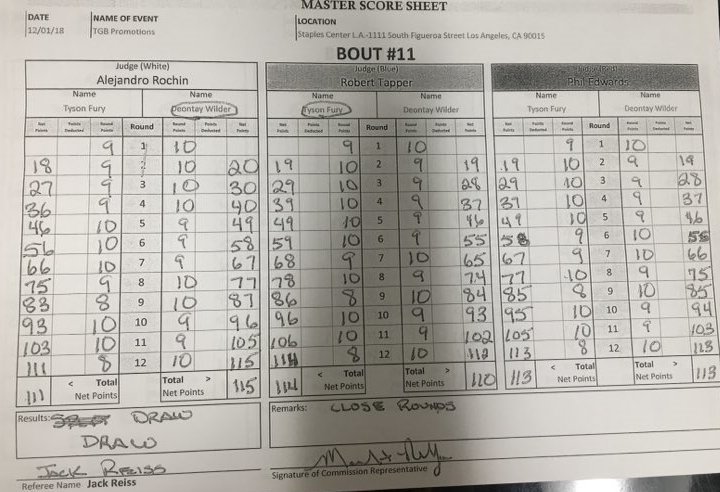 MASTER SCORE SHEET
DATE NAME OF EVENT LOCATION
12/01/18 TGB Promotions Staples Center L.A.-1111 South Figueroa Street Los Angeles, CA 90015
BOUT #11
Judge (White) Judge (Blue) Judge (Red)
Alejandro Rochin Robert Tapper Phil Edwards
Name Name Name Name Name Name
Tyson Fury Deontay Wilder Tyson Fury Deontay Wilder Tyson Fury Deontay Wilder
Net Points Points Deducted Round Points Round Round Points Points Deducted Net Points Net Points Points Deducted Round Points Round Round Points Points Deducted Net Points Net Points Points Deducted Round Points Round Round Points Points Deducted Net Points
9 1 10 9 1 10 9 1 10
18 9 2 10 20 19 10 2 9 19 19 10 2 9 19
27 9 3 10 30 29 10 3 9 28 29 10 3 9 28
36 9 4 10 40 39 10 4 9 37 39 10 4 9 37
46 10 5 9 49 49 10 5 9 46 49 10 5 9 46
56 10 6 9 58 59 10 6 9 55 58 9 6 10 56
66 10 7 9 67 68 9 7 10 65 67 9 7 10 66
75 9 8 10 77 78 10 8 9 74 77 10 8 9 75
83 8 9 10 87 86 8 9 10 84 85 8 9 10 85
93 10 10 9 96 96 10 10 9 93 95 10 10 9 94
103 10 11 9 105 106 10 11 9 102 105 10 11 9 103
111 8 12 10 115 114 8 12 10 112 113 8 12 10 113
< Total Total > < Total Total > < Total Total >
111 Net Points Net Points 115 114 Net Points Net Points 110 113 Net Points Net Points 113
Results: DRAW
DRAW
Remarks: CLOSE ROUNDS
JACK REISS
Referee Name Jack Reiss
Signature of Commission Representative